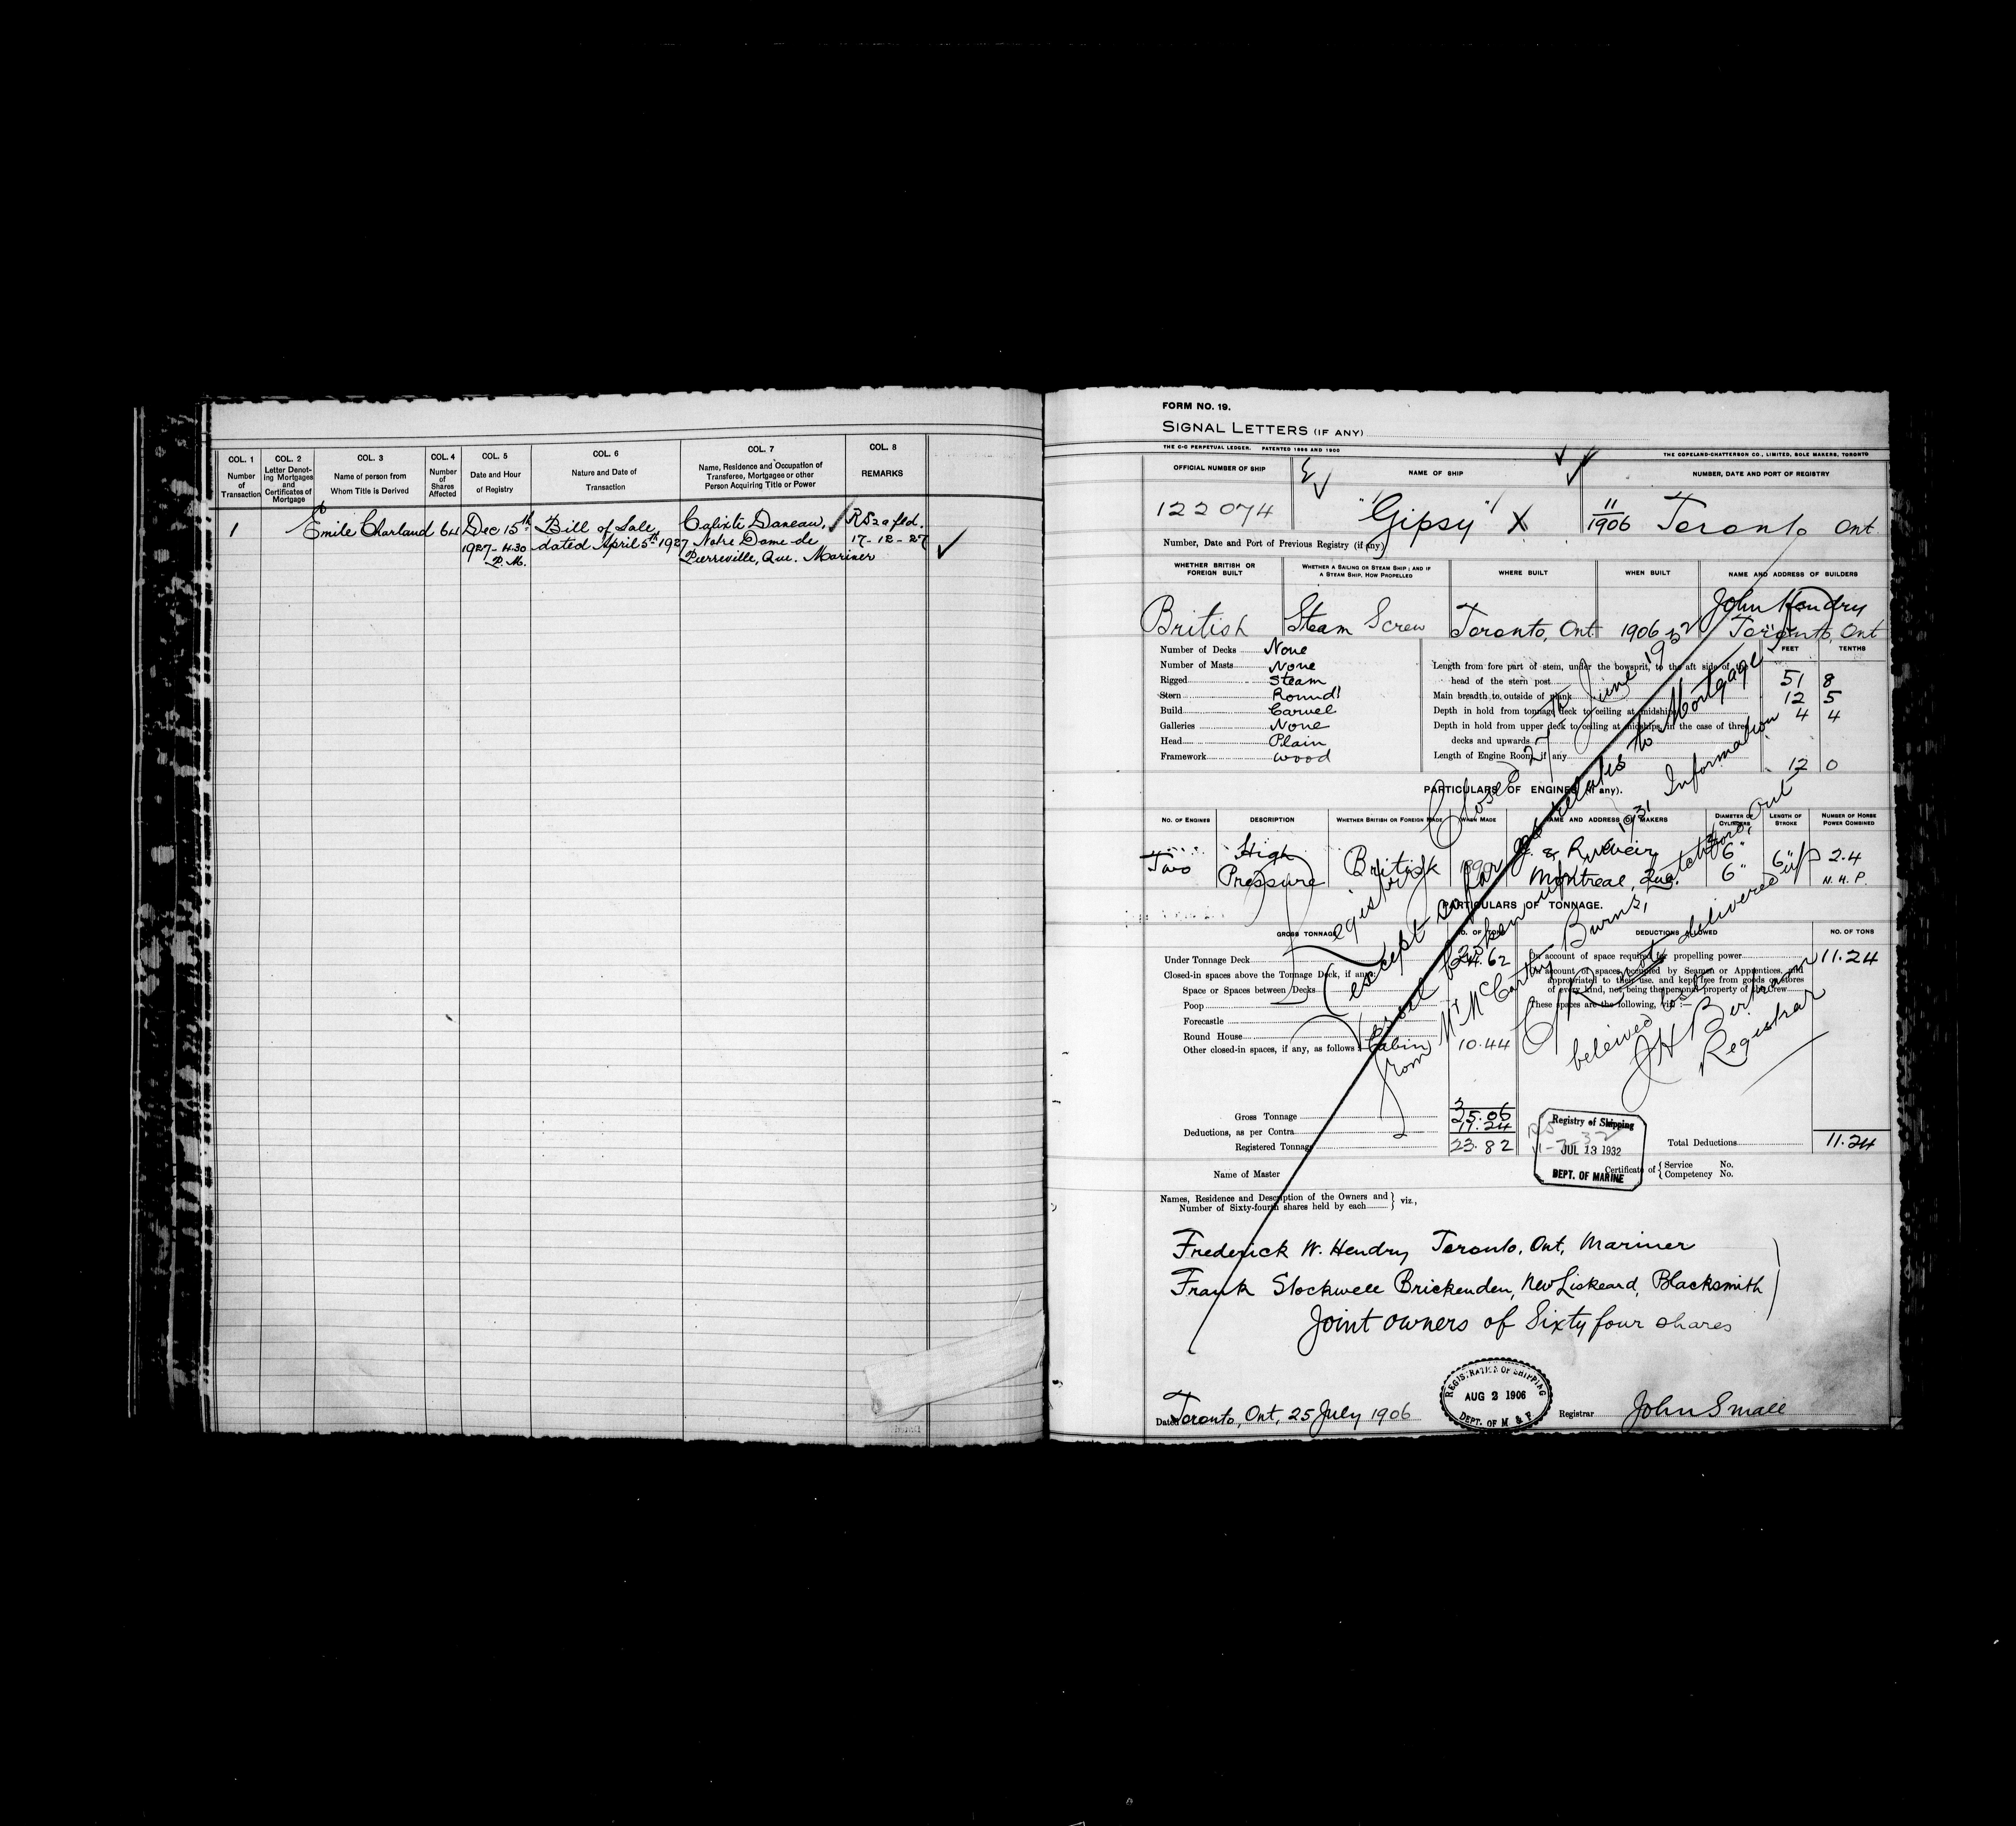 COL. 1 COL. 2 COL. 3 COL. 4 COL. 5 COL. 6 COL. 7 COL. 8
Number of Transaction
Letter Denoting Mortgages and Certificates of Mortgage
Name of person from Whom Title is Derived
Number of Shares Affected
Date and Hour of Registry
Nature and Date of Transaction
Name, Residence and Occupation of Transferee, Mortgagee or other Person Acquiring Title or Power
REMARKS
1 Emile Charland 64 Dec 15th Bill of Sale, Calixte Daneau,
1927 - 4.30 dated April 5th 1927 Notre Dame de 17-12-27
P.M. Pierreville, Que. Mariner
FORM NO. 19.
SIGNAL LETTERS (IF ANY)
THE C-C PERPETUAL LEDGER.
THE COPELAND-CHATTERSON CO., LIMITED, SOLE MAKERS, TORONTO
OFFICIAL NUMBER OF SHIP NAME OF SHIP NUMBER, DATE AND PORT OF REGISTRY
122074 "Gipsy" X 11/1906 Toronto Ont.
Number, Date and Port of Previous Registry (if any)
WHETHER BRITISH OR FOREIGN BUILT
WHETHER A SAILING OR STEAM SHIP; AND IF A STEAM SHIP, HOW PROPELLED
WHERE BUILT WHEN BUILT NAME AND ADDRESS OF BUILDERS
British Steam Screw Toronto, Ont 1906 John Hendry
Toronto, Ont
Number of Decks None
Number of Masts None
Rigged Steam
Stern Round
Build Carvel
Galleries None
Head Plain
Framework Wood
FEET TENTHS
Length from fore part of stem, under the bowsprit, to the aft side of the
head of the stern post 51 8
Main breadth to outside of plank 12 5
Depth in hold from tonnage deck to ceiling at midships 4 4
Depth in hold from upper deck to ceiling at midships, in the case of three
decks and upwards
Length of Engine Room, if any 12 0
PARTICULARS OF ENGINES (if any).
NO. OF ENGINES DESCRIPTION WHETHER BRITISH OR FOREIGN MADE WHEN MADE NAME AND ADDRESS OF MAKERS DIAMETER OF CYLINDERS LENGTH OF STROKE NUMBER OF HORSE POWER COMBINED
Two High Pressure British J. & R. Weir 6" 6" 2.4
Montreal, Que. 6" N.H.P.
PARTICULARS OF TONNAGE.
GROSS TONNAGE NO. OF TONS DEDUCTIONS ALLOWED NO. OF TONS
Under Tonnage Deck
On account of space required for propelling power 11.24
Closed-in spaces above the Tonnage Deck, if any
Space or Spaces between Decks
Poop
Forecastle
Round House
Other closed-in spaces, if any, as follows Cabin 10.44
On account of spaces occupied by Seamen or Apprentices, and
appropriated to their use, and kept free from goods or stores
of every kind, not being the personal property of the Crew
These spaces are the following, viz:—
Gross Tonnage 35.06
Deductions, as per Contra 11.24
Registered Tonnage 23.82
Total Deductions 11.24
Closed 27th June 1932
Registry
(except so far as relates to Mortgage)
Vessel broken up 1931 Information
from Mr McCarthy Burns,
delivered up
beleived lost
Registrar
Registry of Shipping
JUL 13 1932
DEPT. OF MARINE
Name of Master
Certificate of { Service No.
Competency No.
Names, Residence and Description of the Owners and
Number of Sixty-fourth shares held by each } viz.,
Frederick W. Hendry Toronto, Ont, Mariner
Frank Stockwell Brickenden, New Liskeard, Blacksmith
Joint owners of Sixty four shares
REGISTRATION OF SHIPPING
AUG 2 1906
DEPT. OF M & F
Dated Toronto, Ont, 25 July 1906
Registrar John Small